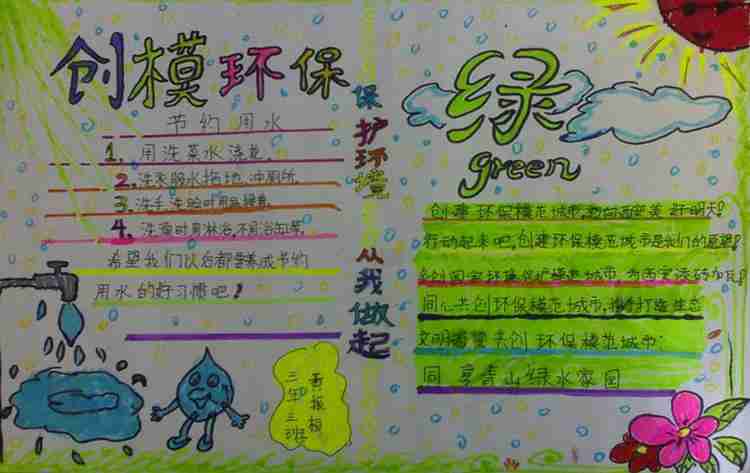 创模环保
节约用水
1、用洗菜水浇花。
2、洗衣服水拖地、冲厕所。
3、洗手、洗脸时用
4、洗澡时用淋浴,不用浴缸等。
希望我们以后都要养成节约
用水的好习惯吧!
三年三班
保护环境 从我做起
绿
green
创建环保模范城市,美好明天!
行动起来吧,创建环保模范城市是我们的愿望!
环境保护模范城市,为西宁添砖加瓦!
同心共创环保模范城市,携手打造生态
文明 共创环保模范城市;
同享青山绿水家园